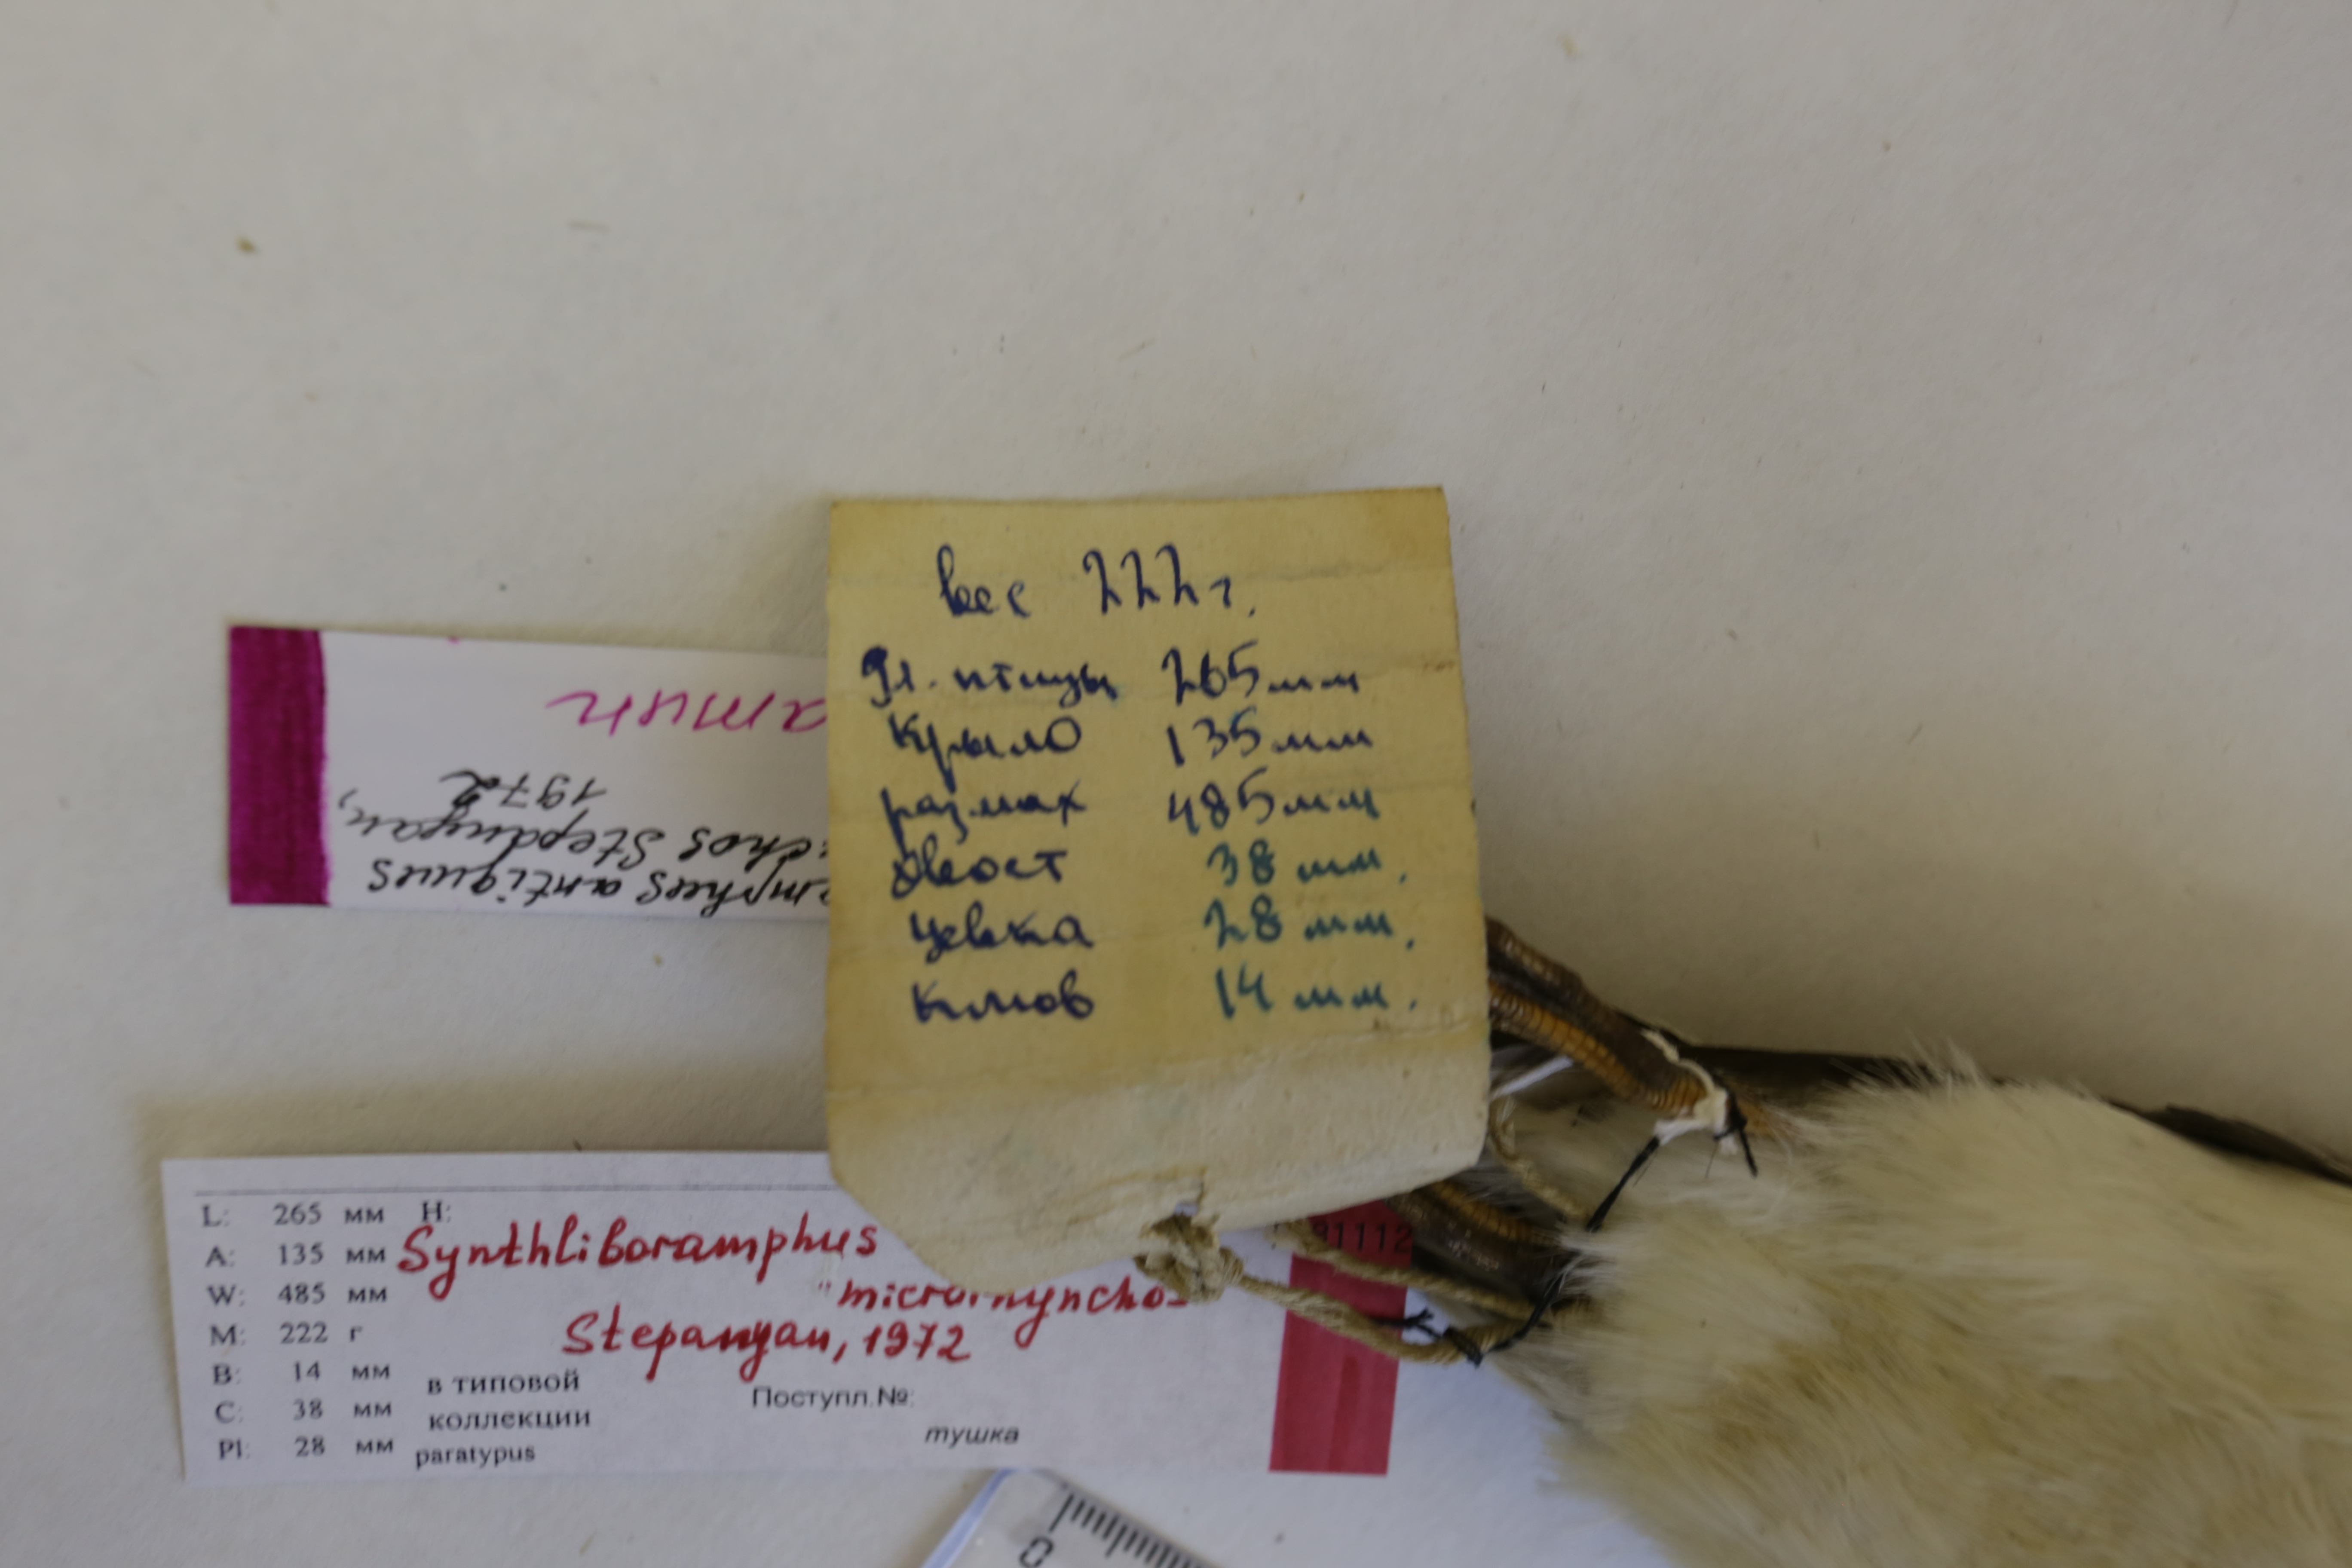 вес 222г.
дл. птицы 265мм
крыло 135мм
размах 485мм
хвост 38 мм.
цевка 28 мм.
клюв 14 мм.
antiquus
chos Stepanyan,
1972
L: 265 мм H:
A: 135 мм
W: 485 мм
M: 222 г
B: 14 мм
C: 38 мм
Pl: 28 мм
Synthliboramphus
"microrhynchos
Stepanyan, 1972
в типовой
коллекции
paratypus
Поступл.№:
тушка
91112
0